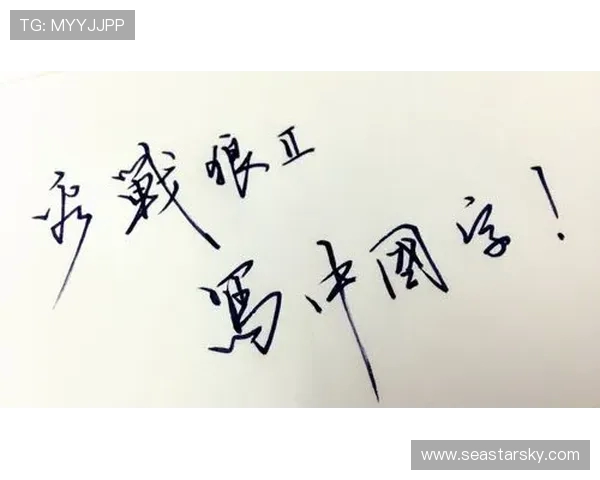 TG: MYYJJPP
戰狼II
寫中國字!
www.seastarsky.com